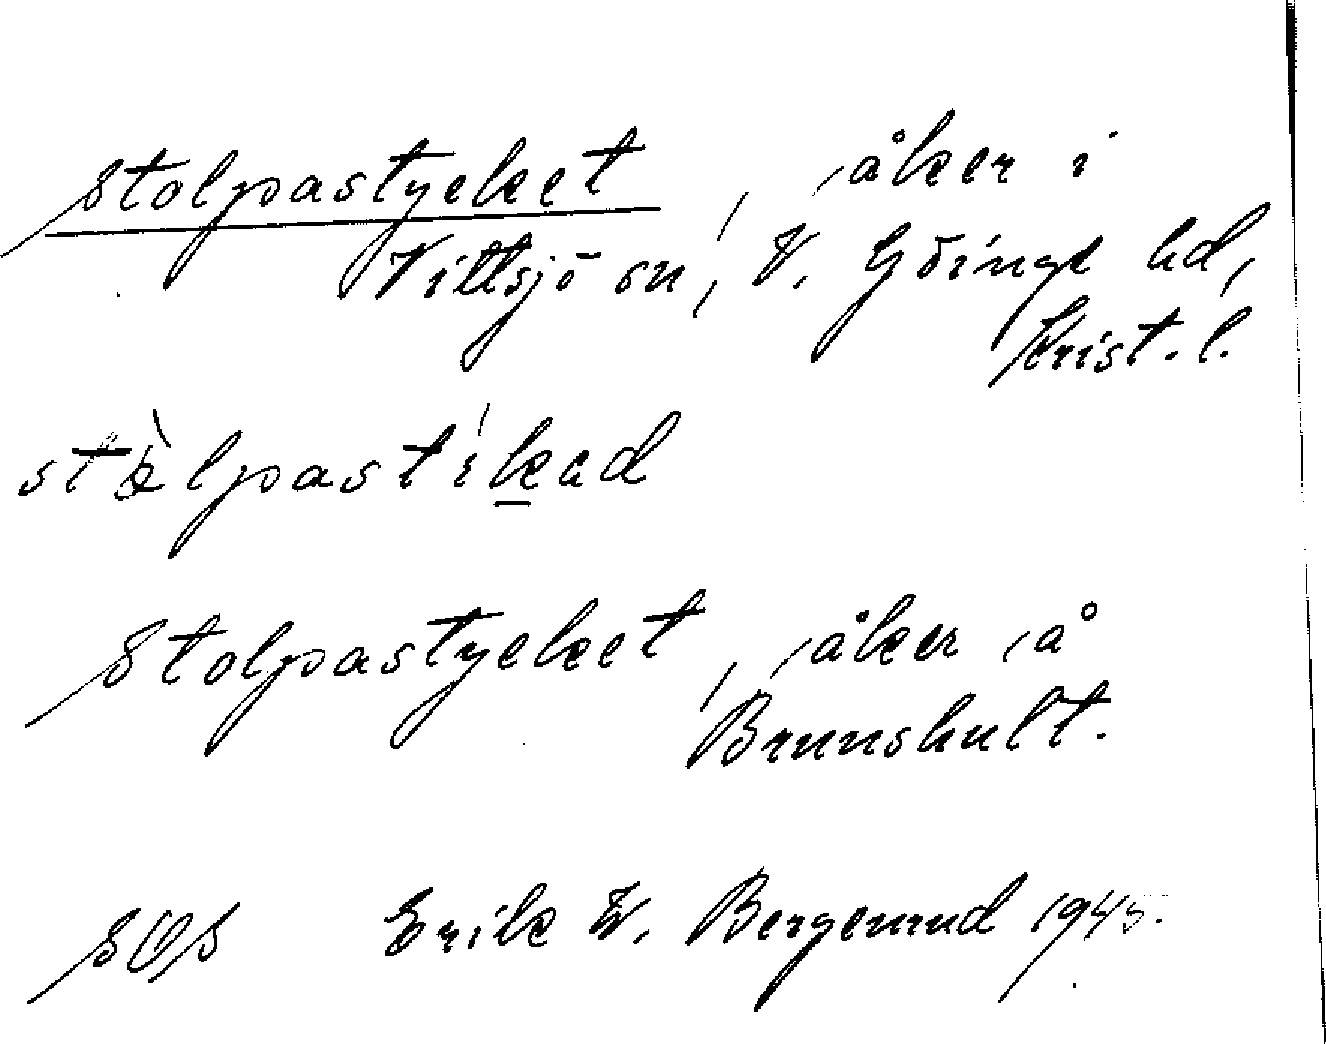 Stolpastycket, åker i
Vittsjö sn, V. Göinge hd,
Krist. l.
Stolpastycket, åker å
Brunshult.
SOS Erik W. Bergenrud 1945.